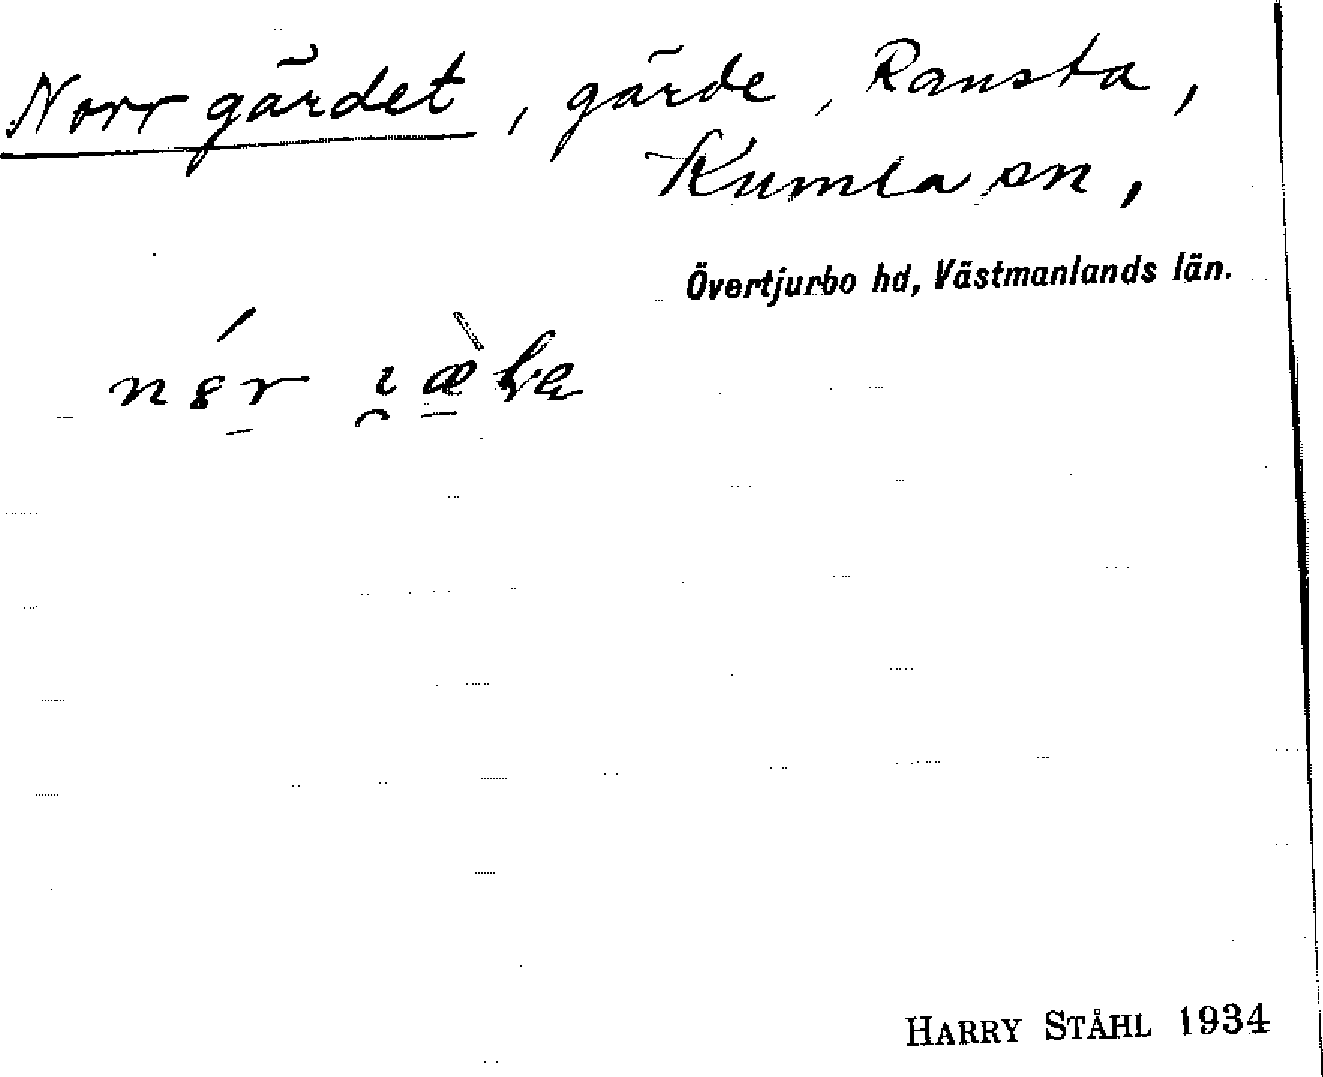 Norrgärdet, gärde, Ransta,
Kumla sn,
Övertjurbo hd, Västmanlands län.
HARRY STÅHL 1934